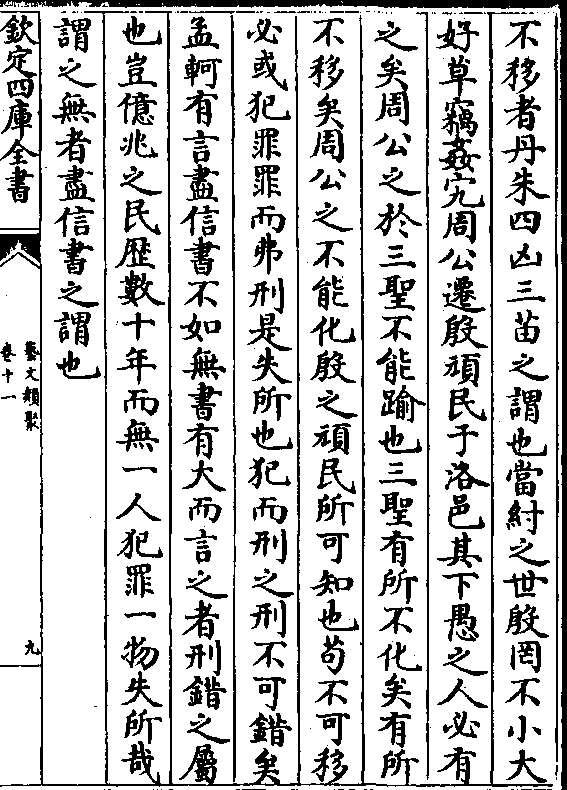 不移者丹朱四凶三苗之謂也當紂之世殷罔不小大
好草竊姦宄周公遷殷頑民于洛邑其下愚之人必有
之矣周公之於三聖不能踰也三聖有所不化矣有所
不移矣周公之不能化殷之頑民所可知也苟不可移
必或犯罪罪而弗刑是失所也犯而刑之刑不可錯矣
孟軻有言盡信書不如無書有大而言之者刑錯之屬
也豈億兆之民歴數十年而無一人犯罪一物失所哉
謂之無者盡信書之謂也
欽定四庫全書
藝文類聚
卷十一
九